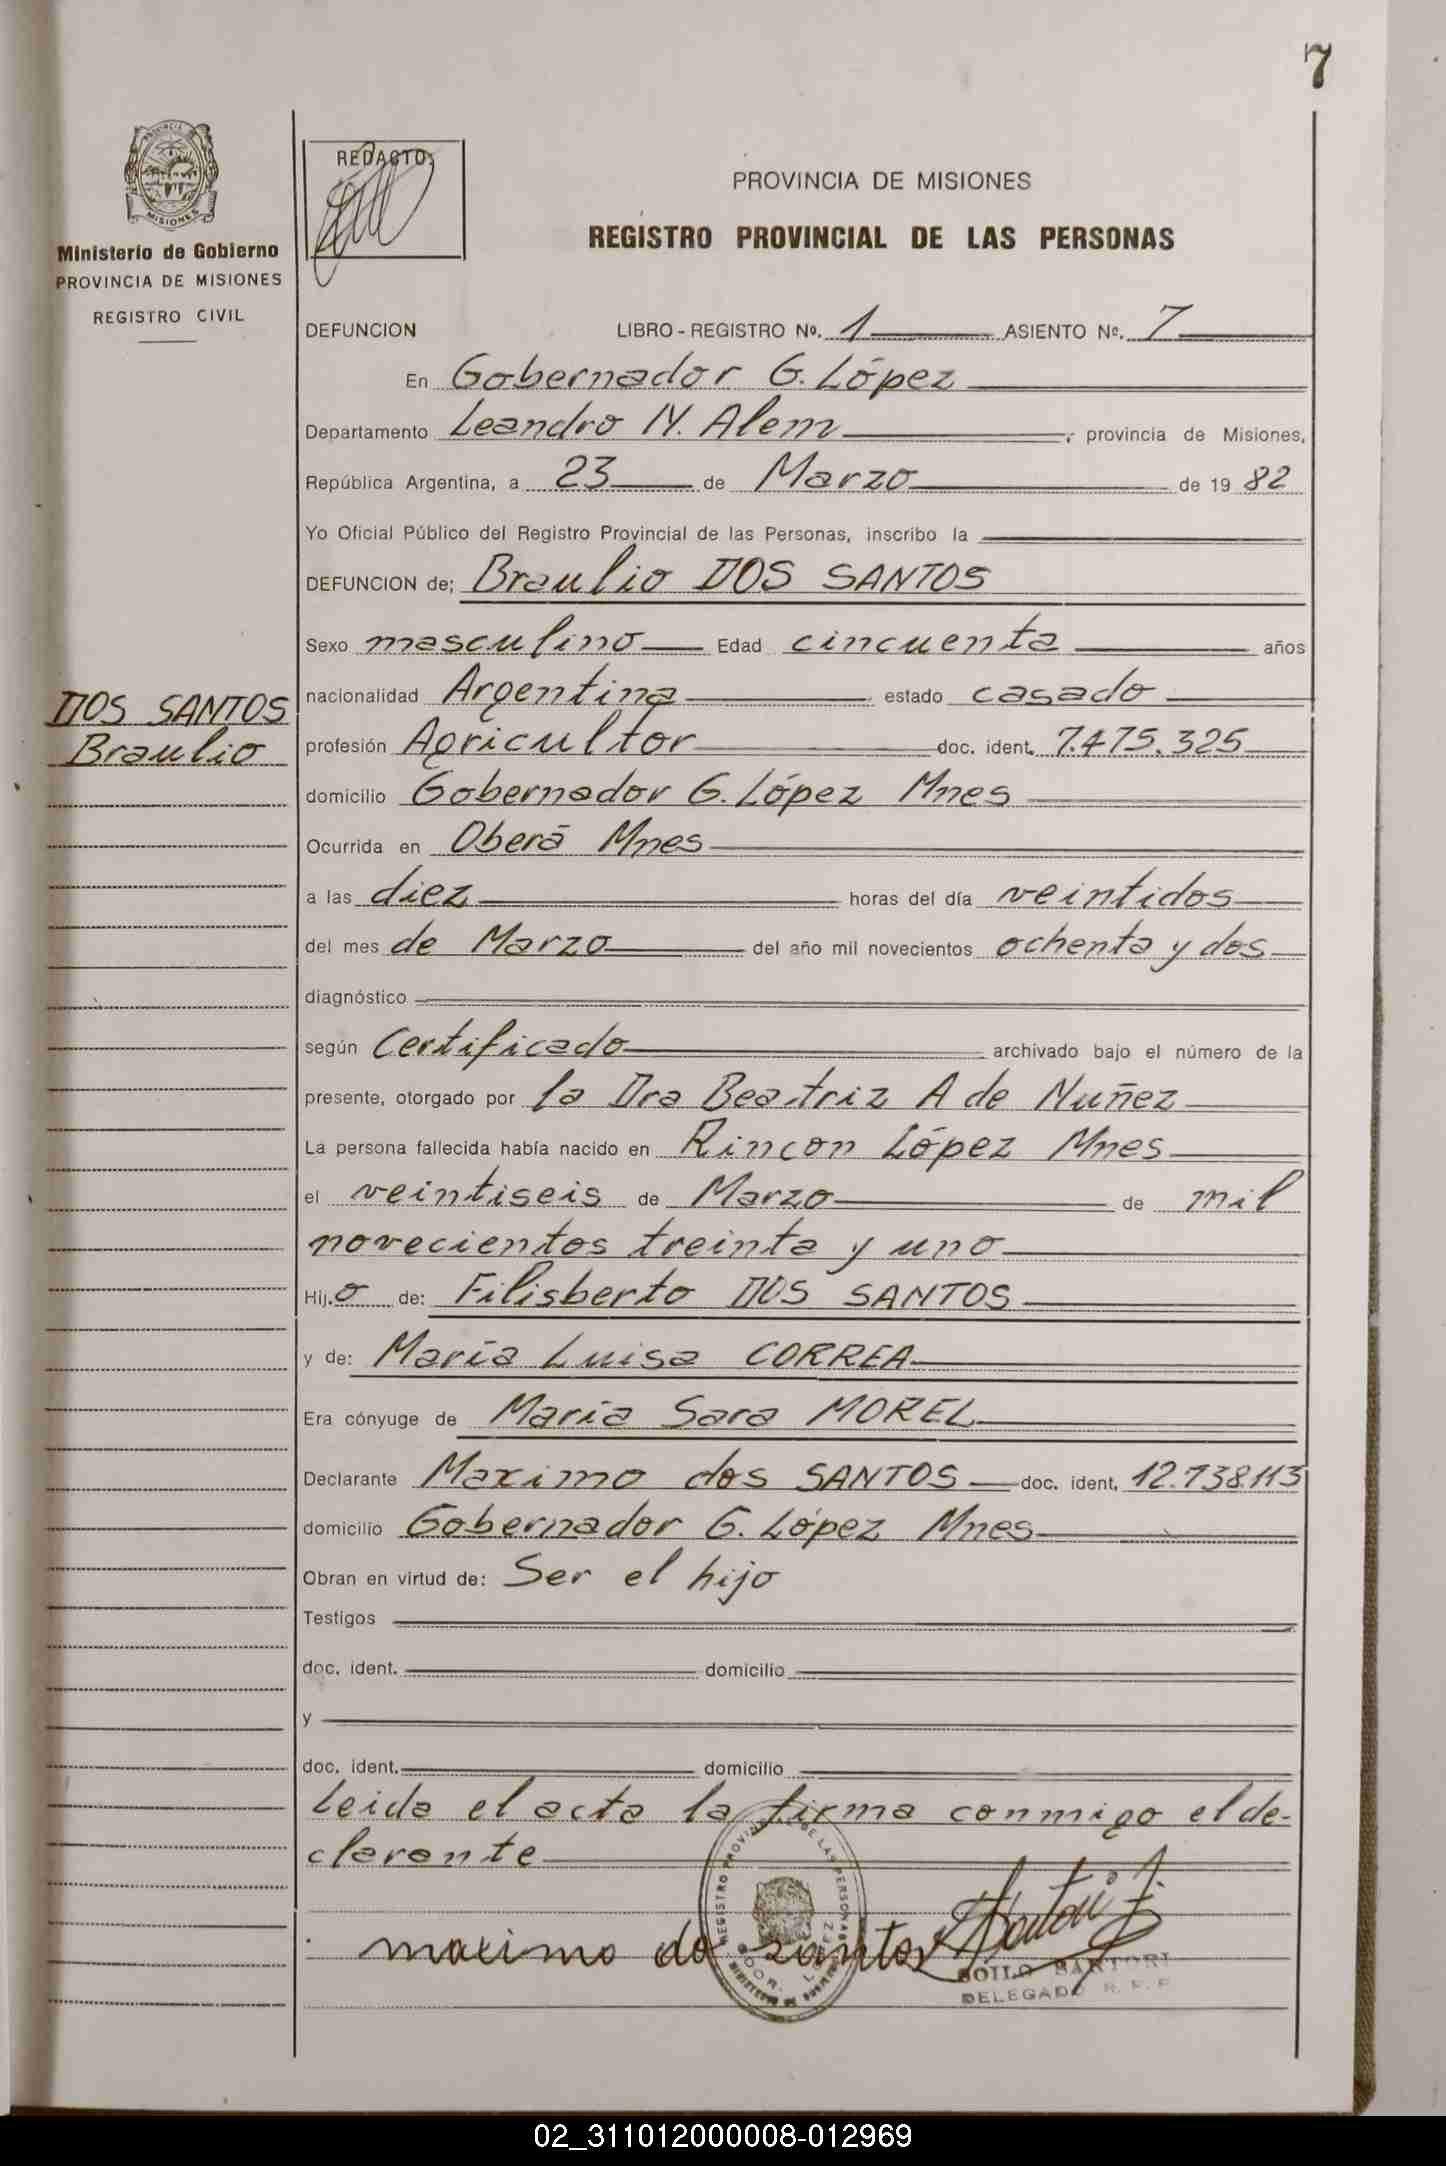 7
PROVINCIA DE
MISIONES
Ministerio de Gobierno
PROVINCIA DE MISIONES
REGISTRO CIVIL
DOS SANTOS
Braulio
REDACTO:
PROVINCIA DE MISIONES
REGISTRO PROVINCIAL DE LAS PERSONAS
DEFUNCION LIBRO - REGISTRO Nº. 1 ASIENTO Nº. 7
En Gobernador G. López
Departamento Leandro N. Alem, provincia de Misiones,
República Argentina, a 23 de Marzo de 19 82
Yo Oficial Público del Registro Provincial de las Personas, inscribo la
DEFUNCION de; Braulio DOS SANTOS
Sexo masculino Edad cincuenta años
nacionalidad Argentina estado casado
profesión Agricultor doc. ident. 7.475.325
domicilio Gobernador G. López Mnes
Ocurrida en Oberá Mnes
a las diez horas del día veintidos
del mes de Marzo del año mil novecientos ochenta y dos
diagnóstico
según Certificado archivado bajo el número de la
presente, otorgado por la Dra Beatriz A de Nuñez
La persona fallecida había nacido en Rincon López Mnes
el veintiseis de Marzo de mil
novecientos treinta y uno
Hij.o de: Filisberto DOS SANTOS
y de: María Luisa CORREA
Era cónyuge de María Sara MOREL
Declarante Maximo dos SANTOS doc. ident. 12.738.113
domicilio Gobernador G. López Mnes
Obran en virtud de: Ser el hijo
Testigos
doc. ident. domicilio
y
doc. ident. domicilio
Leida el acta la firma conmigo el de-
clarante
maximo do santos
REGISTRO PROVINCIAL DE LAS PERSONAS
GDOR. LOPEZ
SOILO SARTORI
DELEGADO R. P. P.
02_311012000008-012969